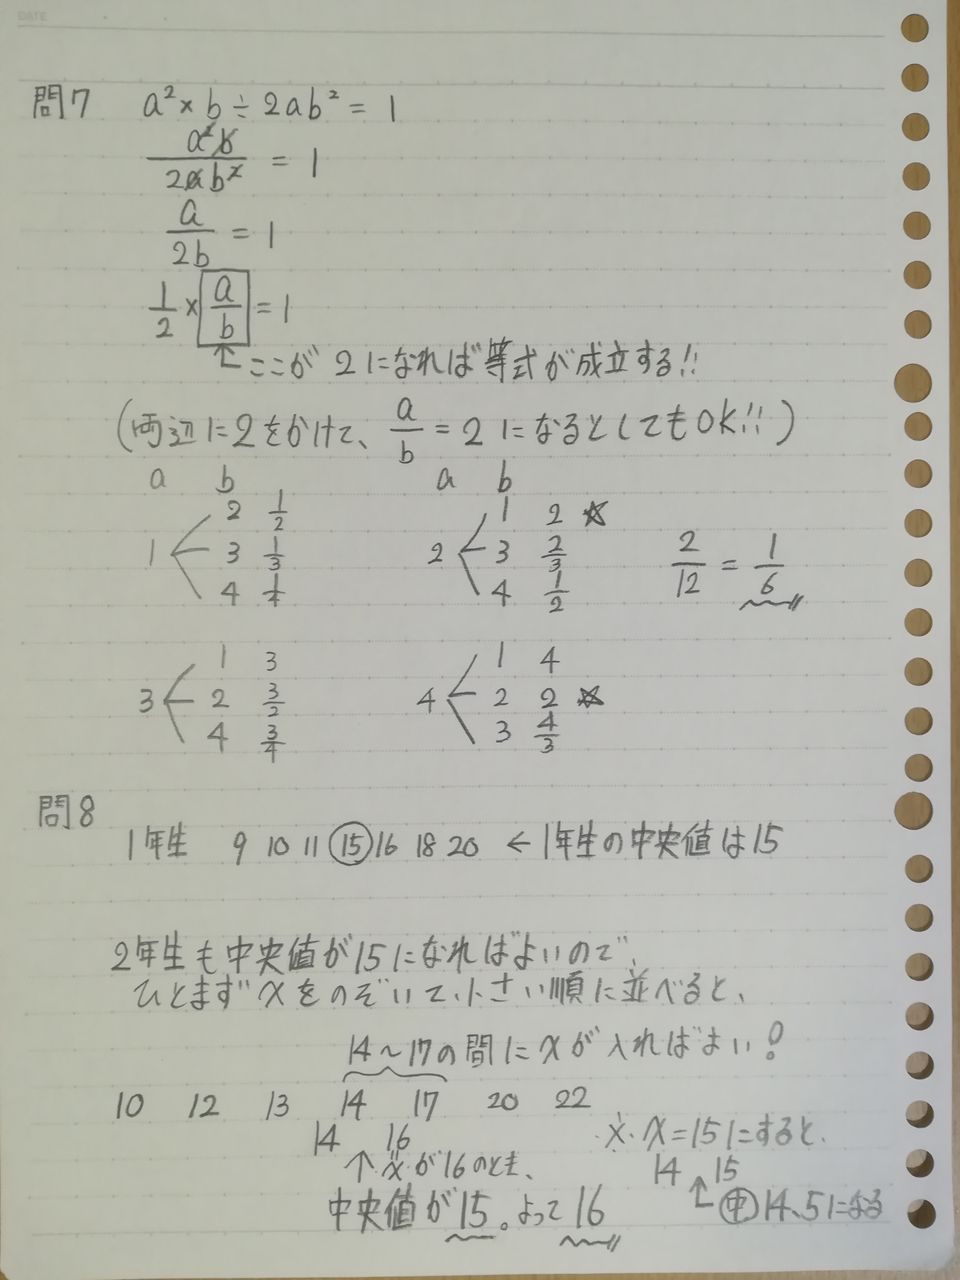 DATE
問7 a²×b÷2ab²=1
a²b/2ab² = 1
a/2b = 1
1/2 × a/b = 1
ここが2になれば等式が成立する!!
(両辺に2をかけて、a/b=2になるとしてもOK!!)
a b a b
1 2 1/2
3 1/3
4 1/4
2 1 2 ☆
3 2/3
4 1/2
2/12 = 1/6
3 1 3
2 3/2
4 3/4
4 1 4
2 2 ☆
3 4/3
問8
1年生 9 10 11 ⑮ 16 18 20 ← 1年生の中央値は15
2年生も中央値が15になればよいので、
ひとまずxをのぞいて小さい順に並べると、
14～17の間にxが入ればよい!
10 12 13 14 17 20 22
14 16
↑xが16のとき、
中央値が15。よって16
※x=15にすると、
14 15
㊥14、5になる